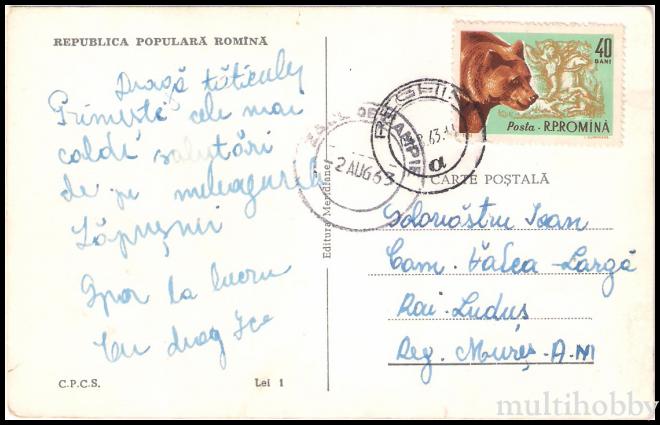 REPUBLICA POPULARĂ ROMÎNĂ
Dragă tăticuley
Primește cele mai
calde salutări
de pe meleagurile
Lăpușnii
Spor la lucru
Cu drag
C.P.C.S.
Lei 1
Editura Meridiane
40
BANI
Posta · R.P.ROMÎNĂ
REGHIN
63
α
CÂMPIE
2 AUG 63
CARTE POȘTALĂ
Ioan
Com. Vălea-Largă
Rai. Luduș
Reg. Mureș-A-M
multihobby